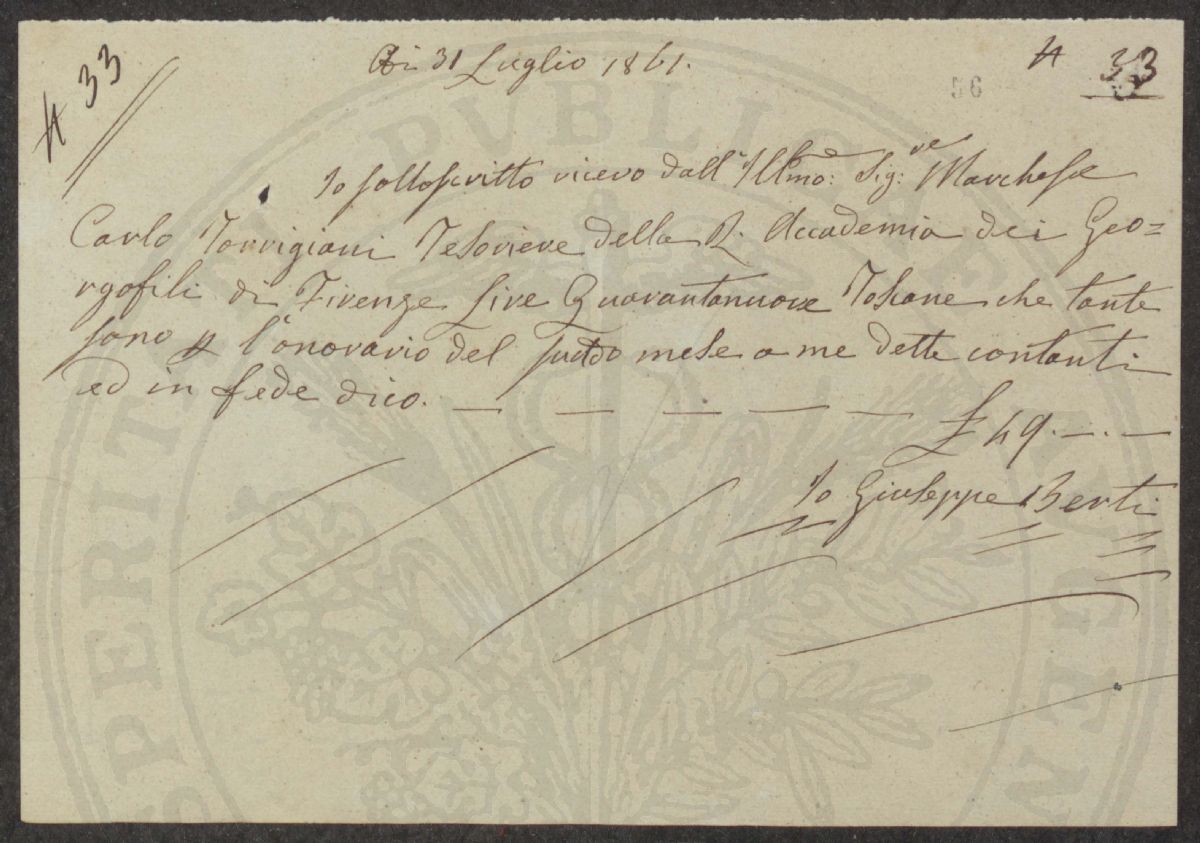 N 33
Adi 31 Luglio 1861.
N 33
56
Io sottoscritto ricevo dall' Illmo: Sig:re Marchese
Carlo Torrigiani Tesoriere della R. Accademia dei Geo=
rgofili di Firenze Lire Quarantanuove Toscane che tante
sono p l'onorario del sudto mese a me dette contanti
ed in fede dico. — — — — —
£ 49. — . —
Io Giuseppe Berti
PROSPERITATI PVBLICAE AVGEN